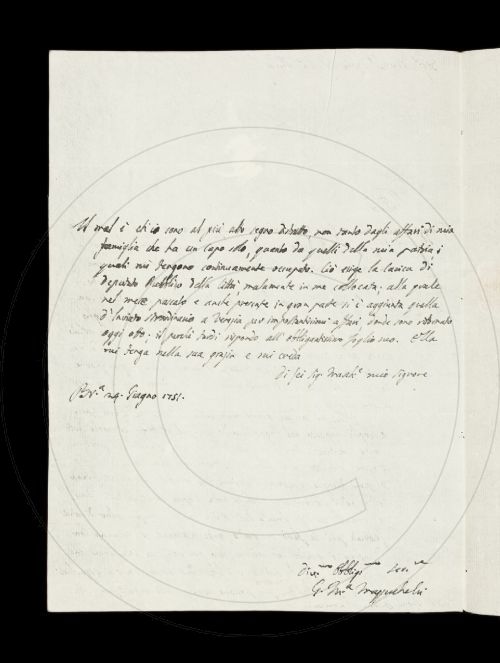 Il mal è ch'io sono al più alto segno distratto, non tanto dagli affari di mia
famiglia che ha un capo solo, quanto da quelli della mia patria i
quali mi tengono continuamente occupato. Ciò esige la carica di
deputato Pubblico della Città, malamente in me collocata; alla quale
nel mese passato e anche presente in gran parte si è aggiunta quella
d'Inviato Straordinario a Venezia per importantissimi affari donde sono ritornato
oggi otto; il perchè tardi rispondo all'obbligantissimo foglio suo. Ella
mi tenga nella sua grazia e mi creda
Di Lei Sig. mio Signore
29. Giugno 1751.
Obblig.mo
G. M.a Mazzuchelli